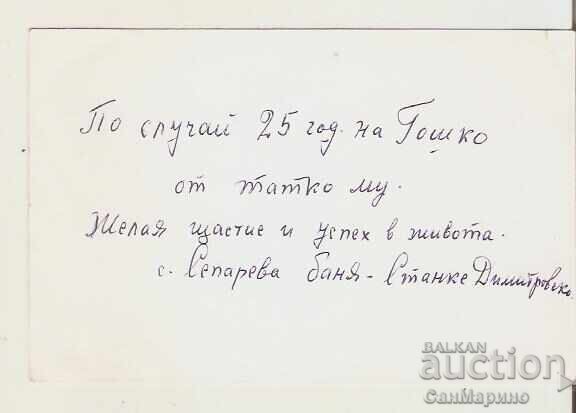 По случай 25 год. на Гошко
от татко му.
Желая щастие и успех в живота.
с. Сепарева баня - Станке Димитровско.
BALKAN
auction
СанМарино